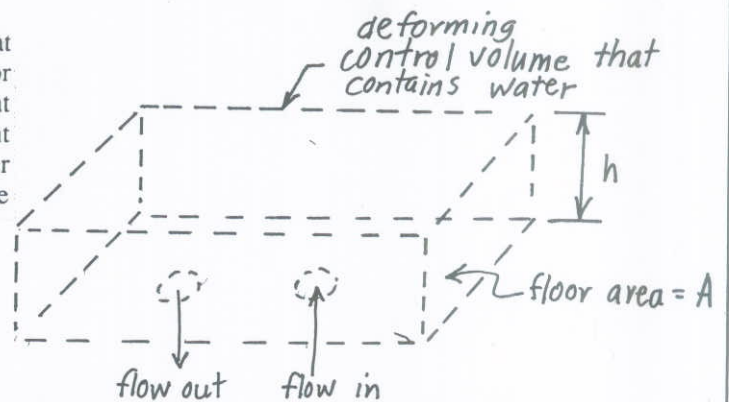 at
or
at
at
r
e
deforming
control volume that
contains water
h
floor area = A
flow out
flow in